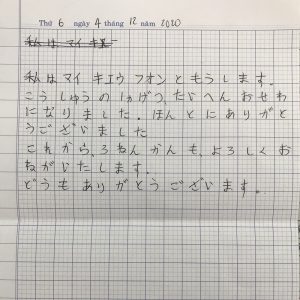 Thứ 6 ngày 4 tháng 12 năm 2020
私は マイ キエ
私は マイ キエウ フオン と もうします。
こうしゅうの しゅげつ、たいへん おせわ
に なりました。ほんとに ありがと
うございました
これから、3ねんかんも、よろしく お
ねがいたします。
どうも ありがとうございます。